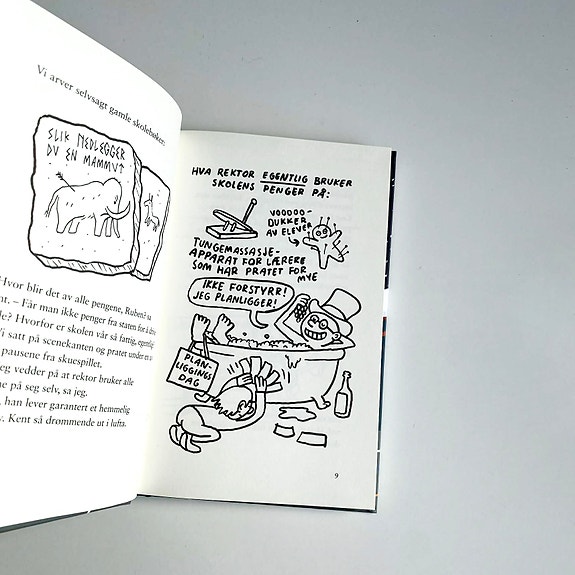 Vi arver selvsagt gamle skolebøker.
SLIK NEDLEGGER
DU EN MAMMUT
Hvor blir det av alle pengene, Ruben? sa
nt. – Får man ikke penger fra staten for å
de? Hvorfor er skolen vår så fattig, egentlig
Vi satt på scenekanten og pratet under en av
pausene fra skuespillet.
eg vedder på at rektor bruker alle
ne på seg selv, sa jeg.
, han lever garantert et hemmelig
v. Kent så drømmende ut i lufta.
HVA REKTOR EGENTLIG BRUKER
SKOLENS PENGER PÅ:
VOODOO-
DUKKER
AV ELEVER
TUNGEMASSASJE-
APPARAT FOR LÆRERE
SOM HAR PRATET FOR
MYE
IKKE FORSTYRR!
JEG PLANLIGGER!
PLAN-
LIGGINGS
DAG
9